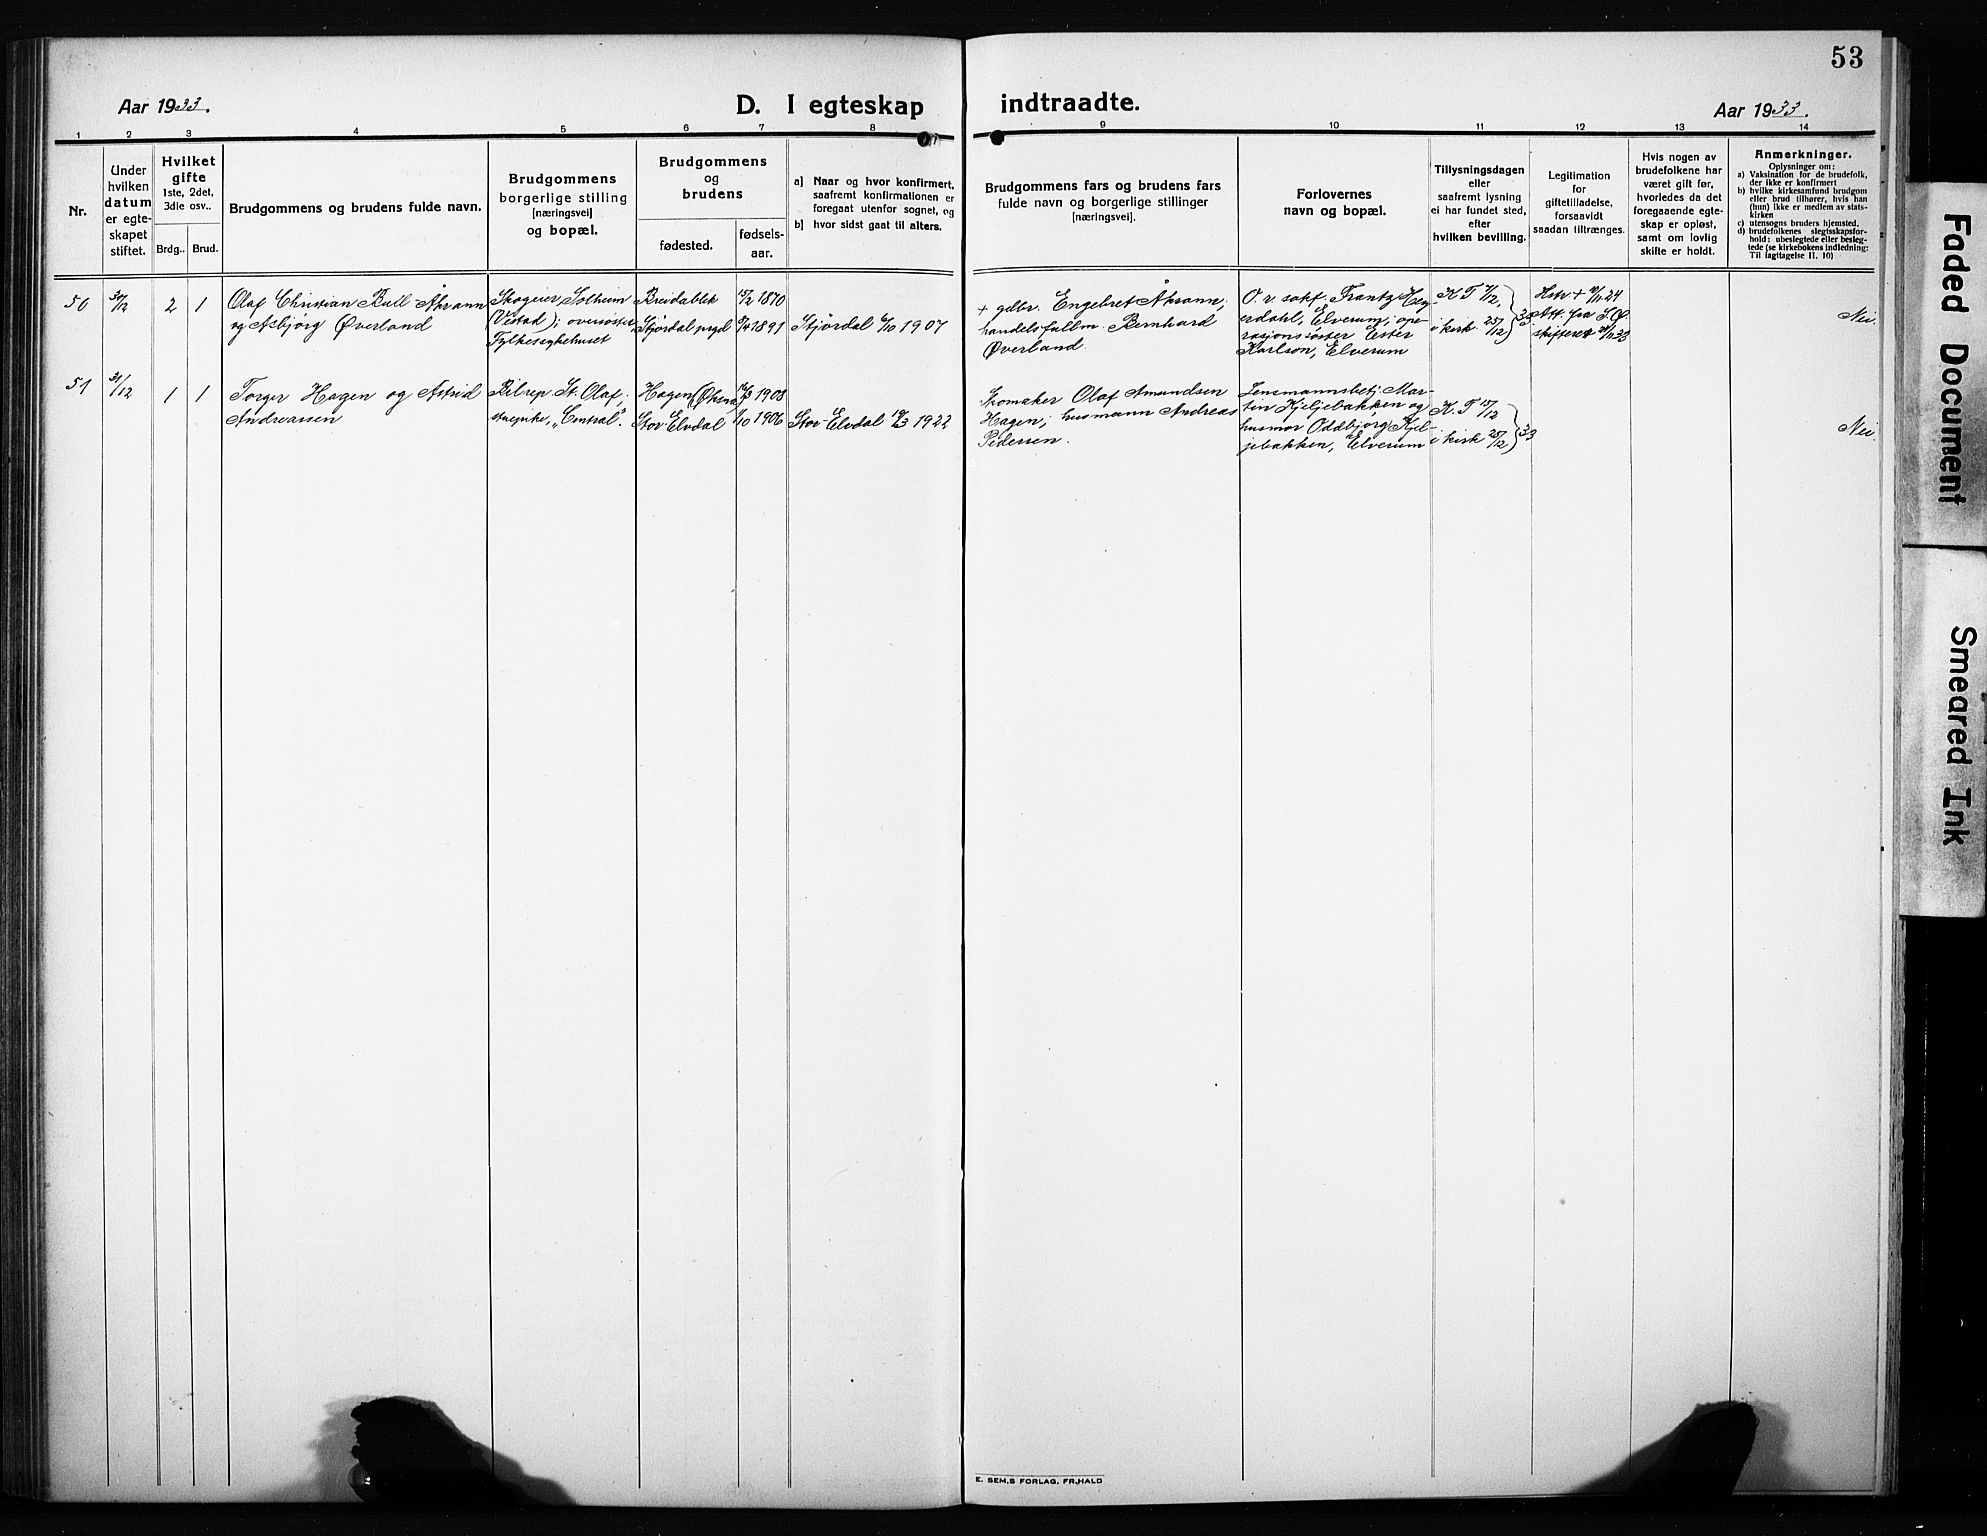 53
Aar 1933.
D. I egteskap
indtraadte.
Aar 1933.
1
2
3
4
5
6
7
8
9
10
11
12
13
14
Nr.
Under
hvilken
datum
er egte-
skapet
stiftet.
Hvilket
gifte
1ste, 2det,
3die osv..
Brdg..
Brud.
Brudgommens og brudens fulde navn.
Brudgommens
borgerlige stilling
[næringsvei]
og bopæl.
Brudgommens
og
brudens
fødested.
fødsels-
aar.
a) Naar og hvor konfirmert,
saafremt konfirmationen er
foregaat utenfor sognet, og
b) hvor sidst gaat til alters.
Brudgommens fars og brudens fars
fulde navn og borgerlige stillinger
[næringsvei].
Forlovernes
navn og bopæl.
Tillysningsdagen
eller
saafremt lysning
ei har fundet sted,
efter
hvilken bevilling.
Legitimation
for
giftetilladelse,
forsaavidt
saadan tiltrænges.
Hvis nogen av
brudefolkene har
været gift før,
hvorledes da det
foregaaende egte-
skap er opløst,
samt om lovlig
skifte er holdt.
Anmerkninger.
Oplysninger om:
a) Vaksination for de brudefolk,
der ikke er konfirmert
b) hvilke kirkesamfund brudgom
eller brud tilhører, hvis han
(hun) ikke er medlem av stats-
kirken
c) utensogns bruders hjemsted.
d) brudefolkenes slegtsskapsfor-
hold: ubeslegtede eller besleg-
tede (se kirkebokens indledning:
Til iagttagelse II. 10)
50
30/12
2
1
Olaf Christian Bull Åkrann
og Asbjörg Överland
Skogeier, Solheim
(Vestad); oversöster
Fylkessykehuset
Breidablik
Stjördal prgd
15/2 1870
8/4 1891
Stjördal 6/10 1907
+ gdbr. Engebret Åkrann;
handelsfullm. Bernhard
Överland.
O. r. sakf. Frantz Hey-
erdahl, Elverum; ope-
rasjonssöster Ester
Karlson, Elverum
K. T 7/12,
i kirk. 25/12
33
Hstr + 4/11 24
Att. fra S. Ö.
skifterett 24/11 33
Nei.
51
31/12
1
1
Torger Hagen og Astrid
Andreassen
Bilrep. St. Olaf;
stuepike, "Central".
Hagen (Öksna)
Stor-Elvdal
1908
1/10 1906
Stor Elvdal 19/3 1922
Skomaker Olaf Amundsen
Hagen; husmann Andreas
Pedersen.
Lensmannsbetj. Mar-
tin Kjeljebakken og
husmor Oddbjörg Kjel-
jebakken, Elverum
K. T 15/12
i kirk 25/12
33
Nei.
E. SEM.S FORLAG. FR.HALD
Faded Document
Smeared Ink